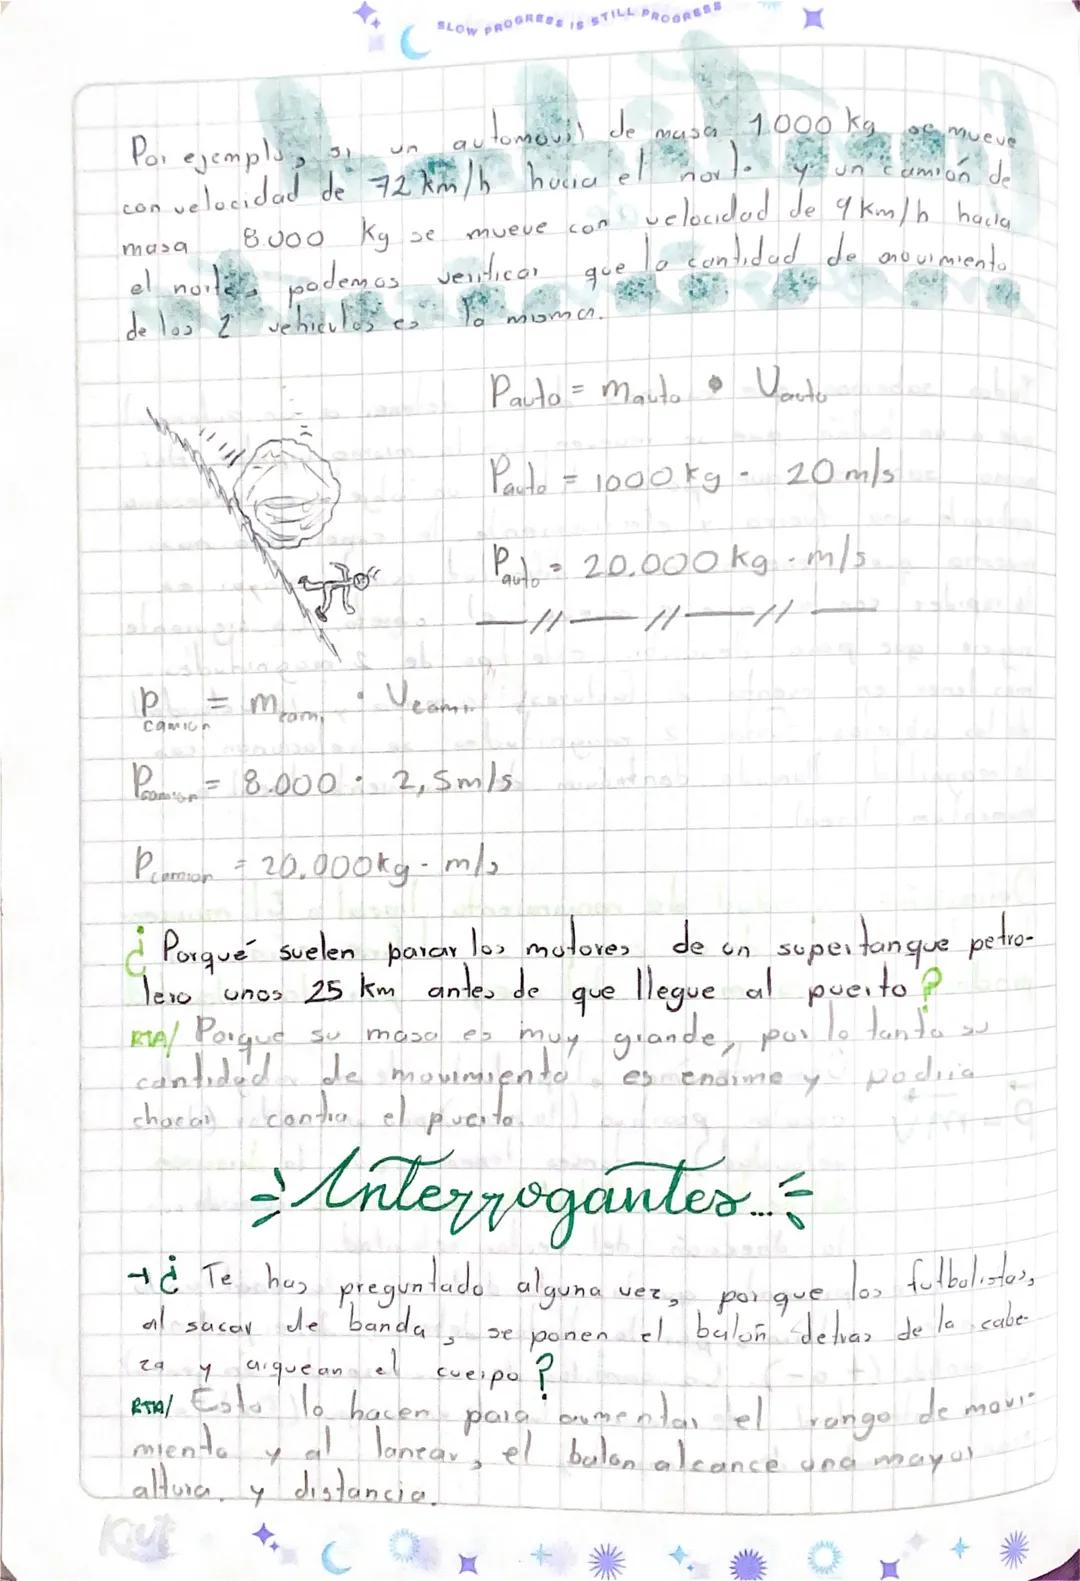 SLOW PROGRESS IS STILL PROGRESS
Por ejemplo, si un automovil de masa 1.000 kg se mueve
con velocidad de 72 km/h hacia el norte y un camión de
masa 8.000 kg se mueve con velocidad de 9 km/h hacia
el norte, podemos verificar que la cantidad de movimiento
de los 2 vehiculos es la misma.
Pauto = mauto • Vauto
Pauto = 1000 kg - 20 m/s
Pauto = 20.000 kg . m/s
Pcamion = mcami • Vcami
Pcamion = 8.000 · 2,5m/s
Pcamion = 20.000kg - m/s
¿Porqué suelen parar los motores de un supertanque petro-
lero unos 25 km antes de que llegue al puerto?
RTA/ Porque su masa es muy grande, por lo tanto su
cantidad de movimiento es enorme y podria
chocar contra el puerto.
Interrogantes...
→¿Te has preguntado alguna vez, por que los futbolistas,
al sacar de banda, se ponen el balón detras de la cabe-
za y arquean el cuerpo?
RTA/ Esto lo hacen para aumentar el rango de movi-
miento y al lanzar, el balon alcance una mayor
altura y distancia.